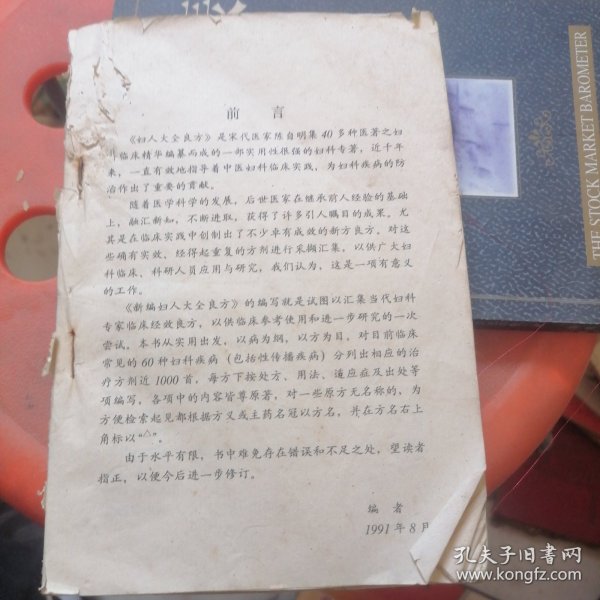 前 言
《妇人大全良方》是宋代医家陈自明集 40 多种医著之妇
科临床精华编纂而成的一部实用性很强的妇科专著,近千年
来,一直有效地指导着中医妇科临床实践,为妇科疾病的防
治作出了重要的贡献。
随着医学科学的发展,后世医家在继承前人经验的基础
上,融汇新知,不断进取,获得了许多引人瞩目的成果。尤
其是在临床实践中创制出了不少卓有成效的新方良方。对这
些确有实效、经得起重复的方剂进行采撷汇集,以供广大妇
科临床、科研人员应用与研究,我们认为,这是一项有意义
的工作。
《新编妇人大全良方》的编写就是试图以汇集当代妇科
专家临床经效良方,以供临床参考使用和进一步研究的一次
尝试。本书从实用出发,以病为纲,以方为目。对目前临床
常见的 60 种妇科疾病(包括性传播疾病)分列出相应的治
疗方剂近 1000 首,每方下按处方、用法、适应症及出处等
项编写,各项中的内容皆尊原著,对一些原方无名称的,为
方便检索起见都根据方义或主药名冠以方名,并在方名右上
角标以“△”。
由于水平有限,书中难免存在错误和不足之处,望读者
指正,以便今后进一步修订。
编 者
1991 年 8 月
THE STOCK MARKET BAROMETER
孔夫子旧书网
www.kongfz.com